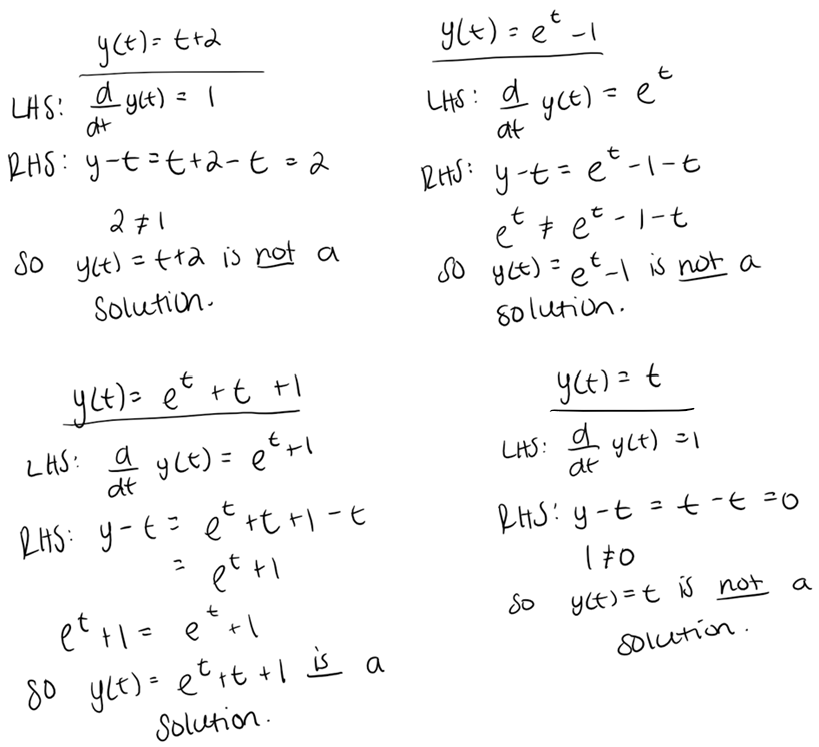 y(t) = t+2
LHS: d/dt y(t) = 1
RHS: y-t = t+2-t = 2
2 ≠ 1
So y(t) = t+2 is not a
solution.
y(t) = e^t -1
LHS: d/dt y(t) = e^t
RHS: y-t = e^t -1-t
e^t ≠ e^t -1-t
So y(t) = e^t -1 is not a
solution.
y(t) = e^t + t +1
LHS: d/dt y(t) = e^t +1
RHS: y-t = e^t +t+1-t
= e^t +1
e^t +1 = e^t +1
So y(t) = e^t +t+1 is a
solution.
y(t) = t
LHS: d/dt y(t) =1
RHS: y-t = t-t =0
1≠0
So y(t) = t is not a
solution.